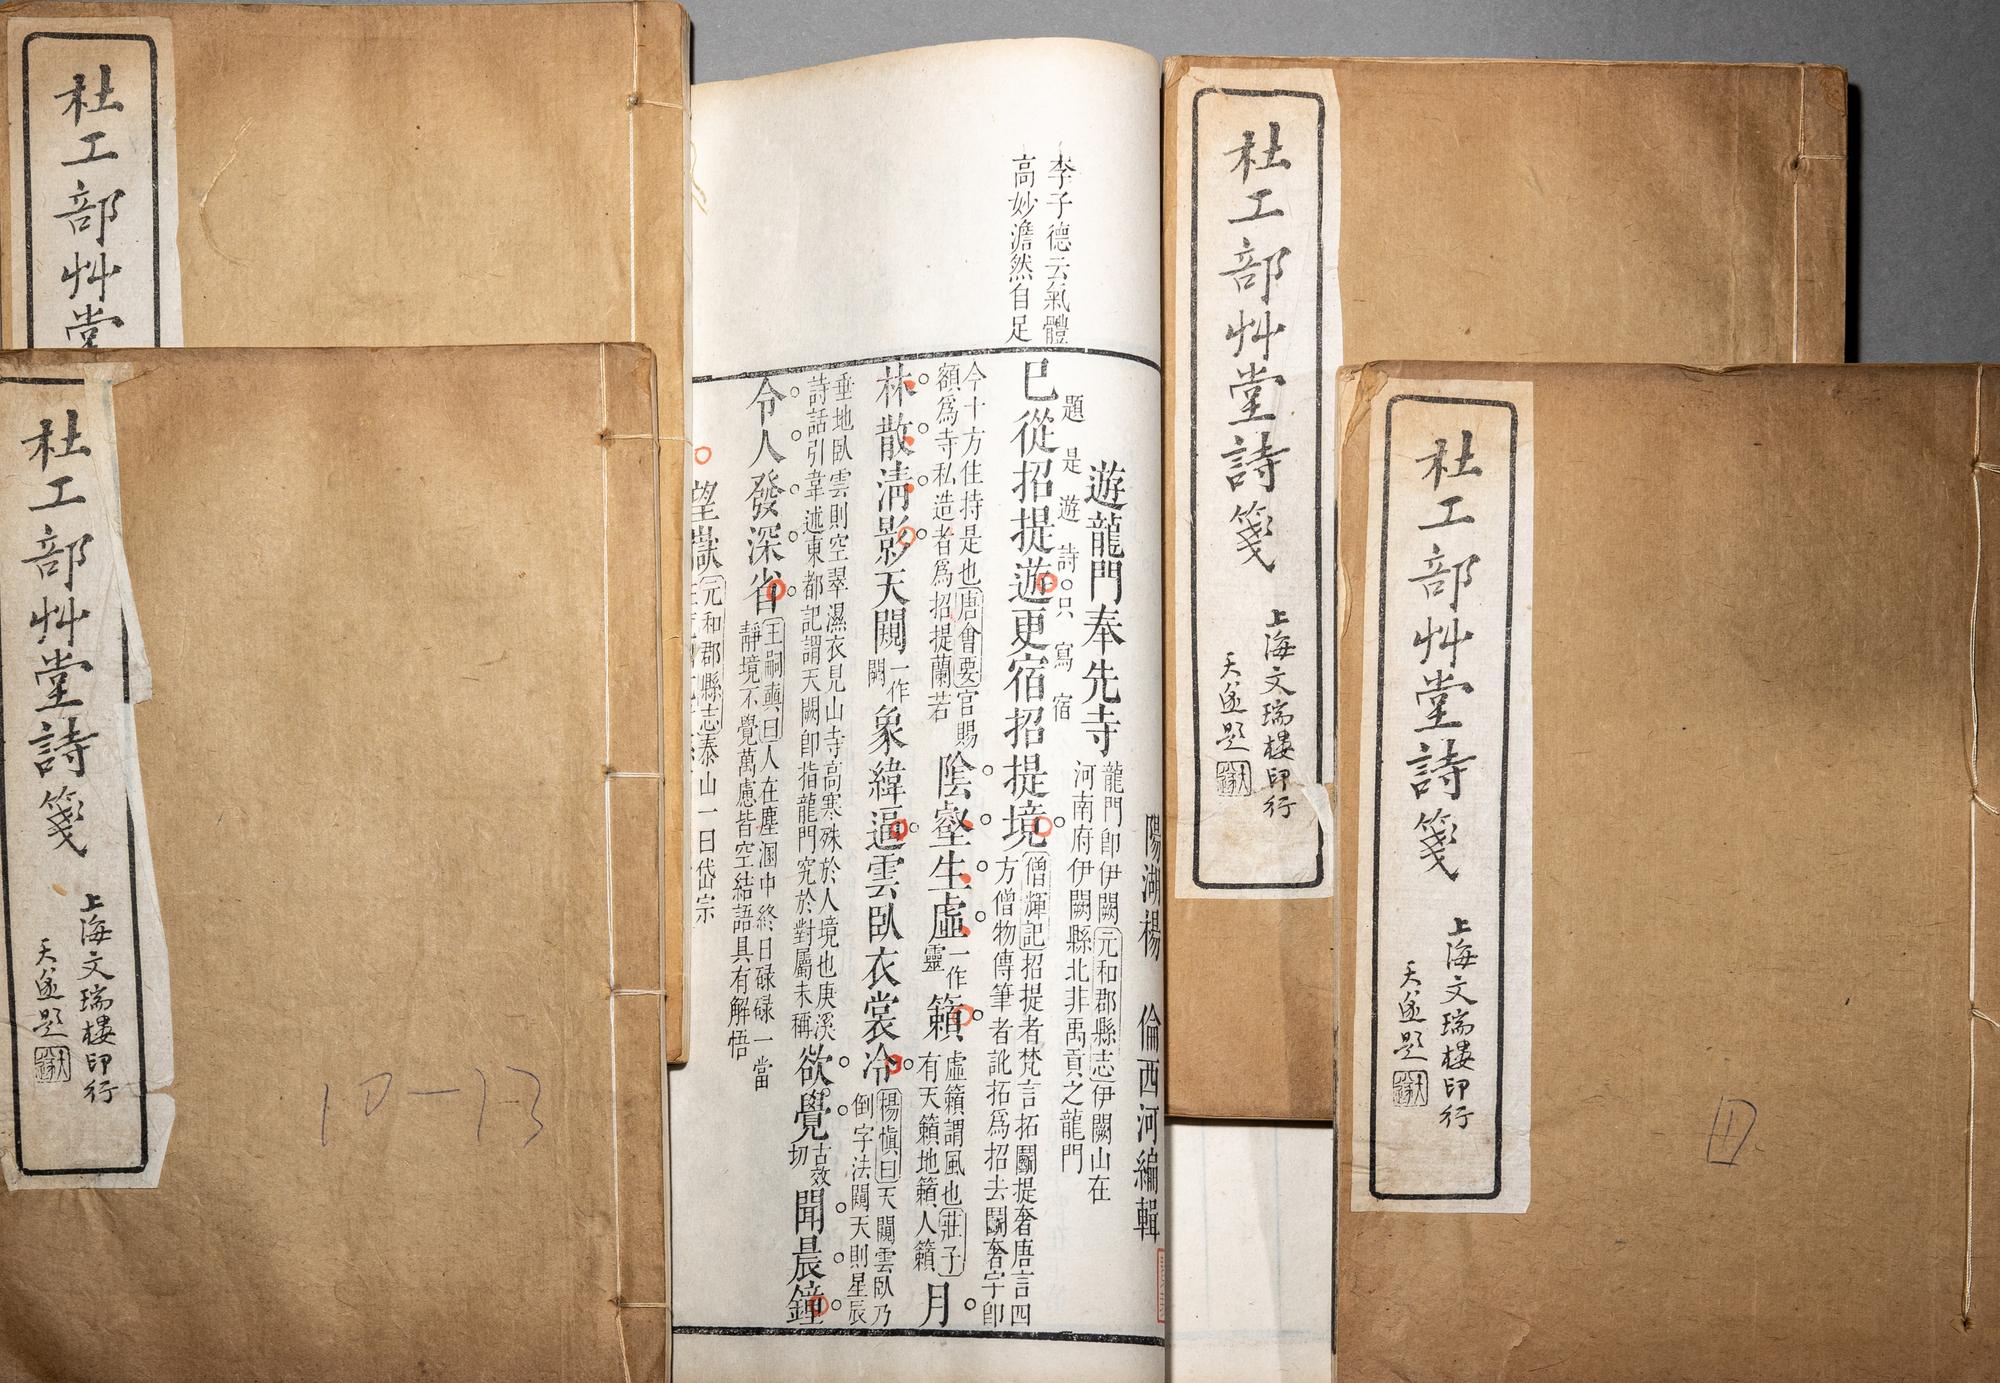 杜工部艸堂
杜工部艸堂詩箋
上海文瑞樓印行
天遂題
李子德云氣體
高妙澹然自足
陽湖楊　倫西河編輯
遊龍門奉先寺
龍門卽伊闕元和郡縣志伊闕山在
河南府伊闕縣北非禹貢之龍門
題是遊詩○只寫宿
已從招提遊更宿招提境
僧輝記招提者梵言拓鬭提奢唐言四
方僧物傳筆者訛拓爲招去鬭奢字卽
今十方住持是也唐會要官賜
額爲寺私造者爲招提蘭若
陰壑生虛
一作
靈
籟
虛籟謂風也莊子
有天籟地籟人籟
月
林散淸影天闚
一作
闕
象緯逼雲臥衣裳冷
楊愼曰天闚雲臥乃
倒字法闚天則星辰
垂地臥雲則空翠濕衣見山寺高寒殊於人境也庚溪
詩話引韋述東都記謂天闕卽指龍門究於對屬未稱
欲覺
古效
切
聞晨鐘
令人發深省
王嗣奭曰人在塵溷中終日碌碌一當
靜境不覺萬慮皆空結語具有解悟
望嶽
元和郡縣志泰山一曰岱宗
杜工部艸堂詩箋
上海文瑞樓印行
天遂題
杜工部艸堂詩箋
上海文瑞樓印行
天遂題
10-13